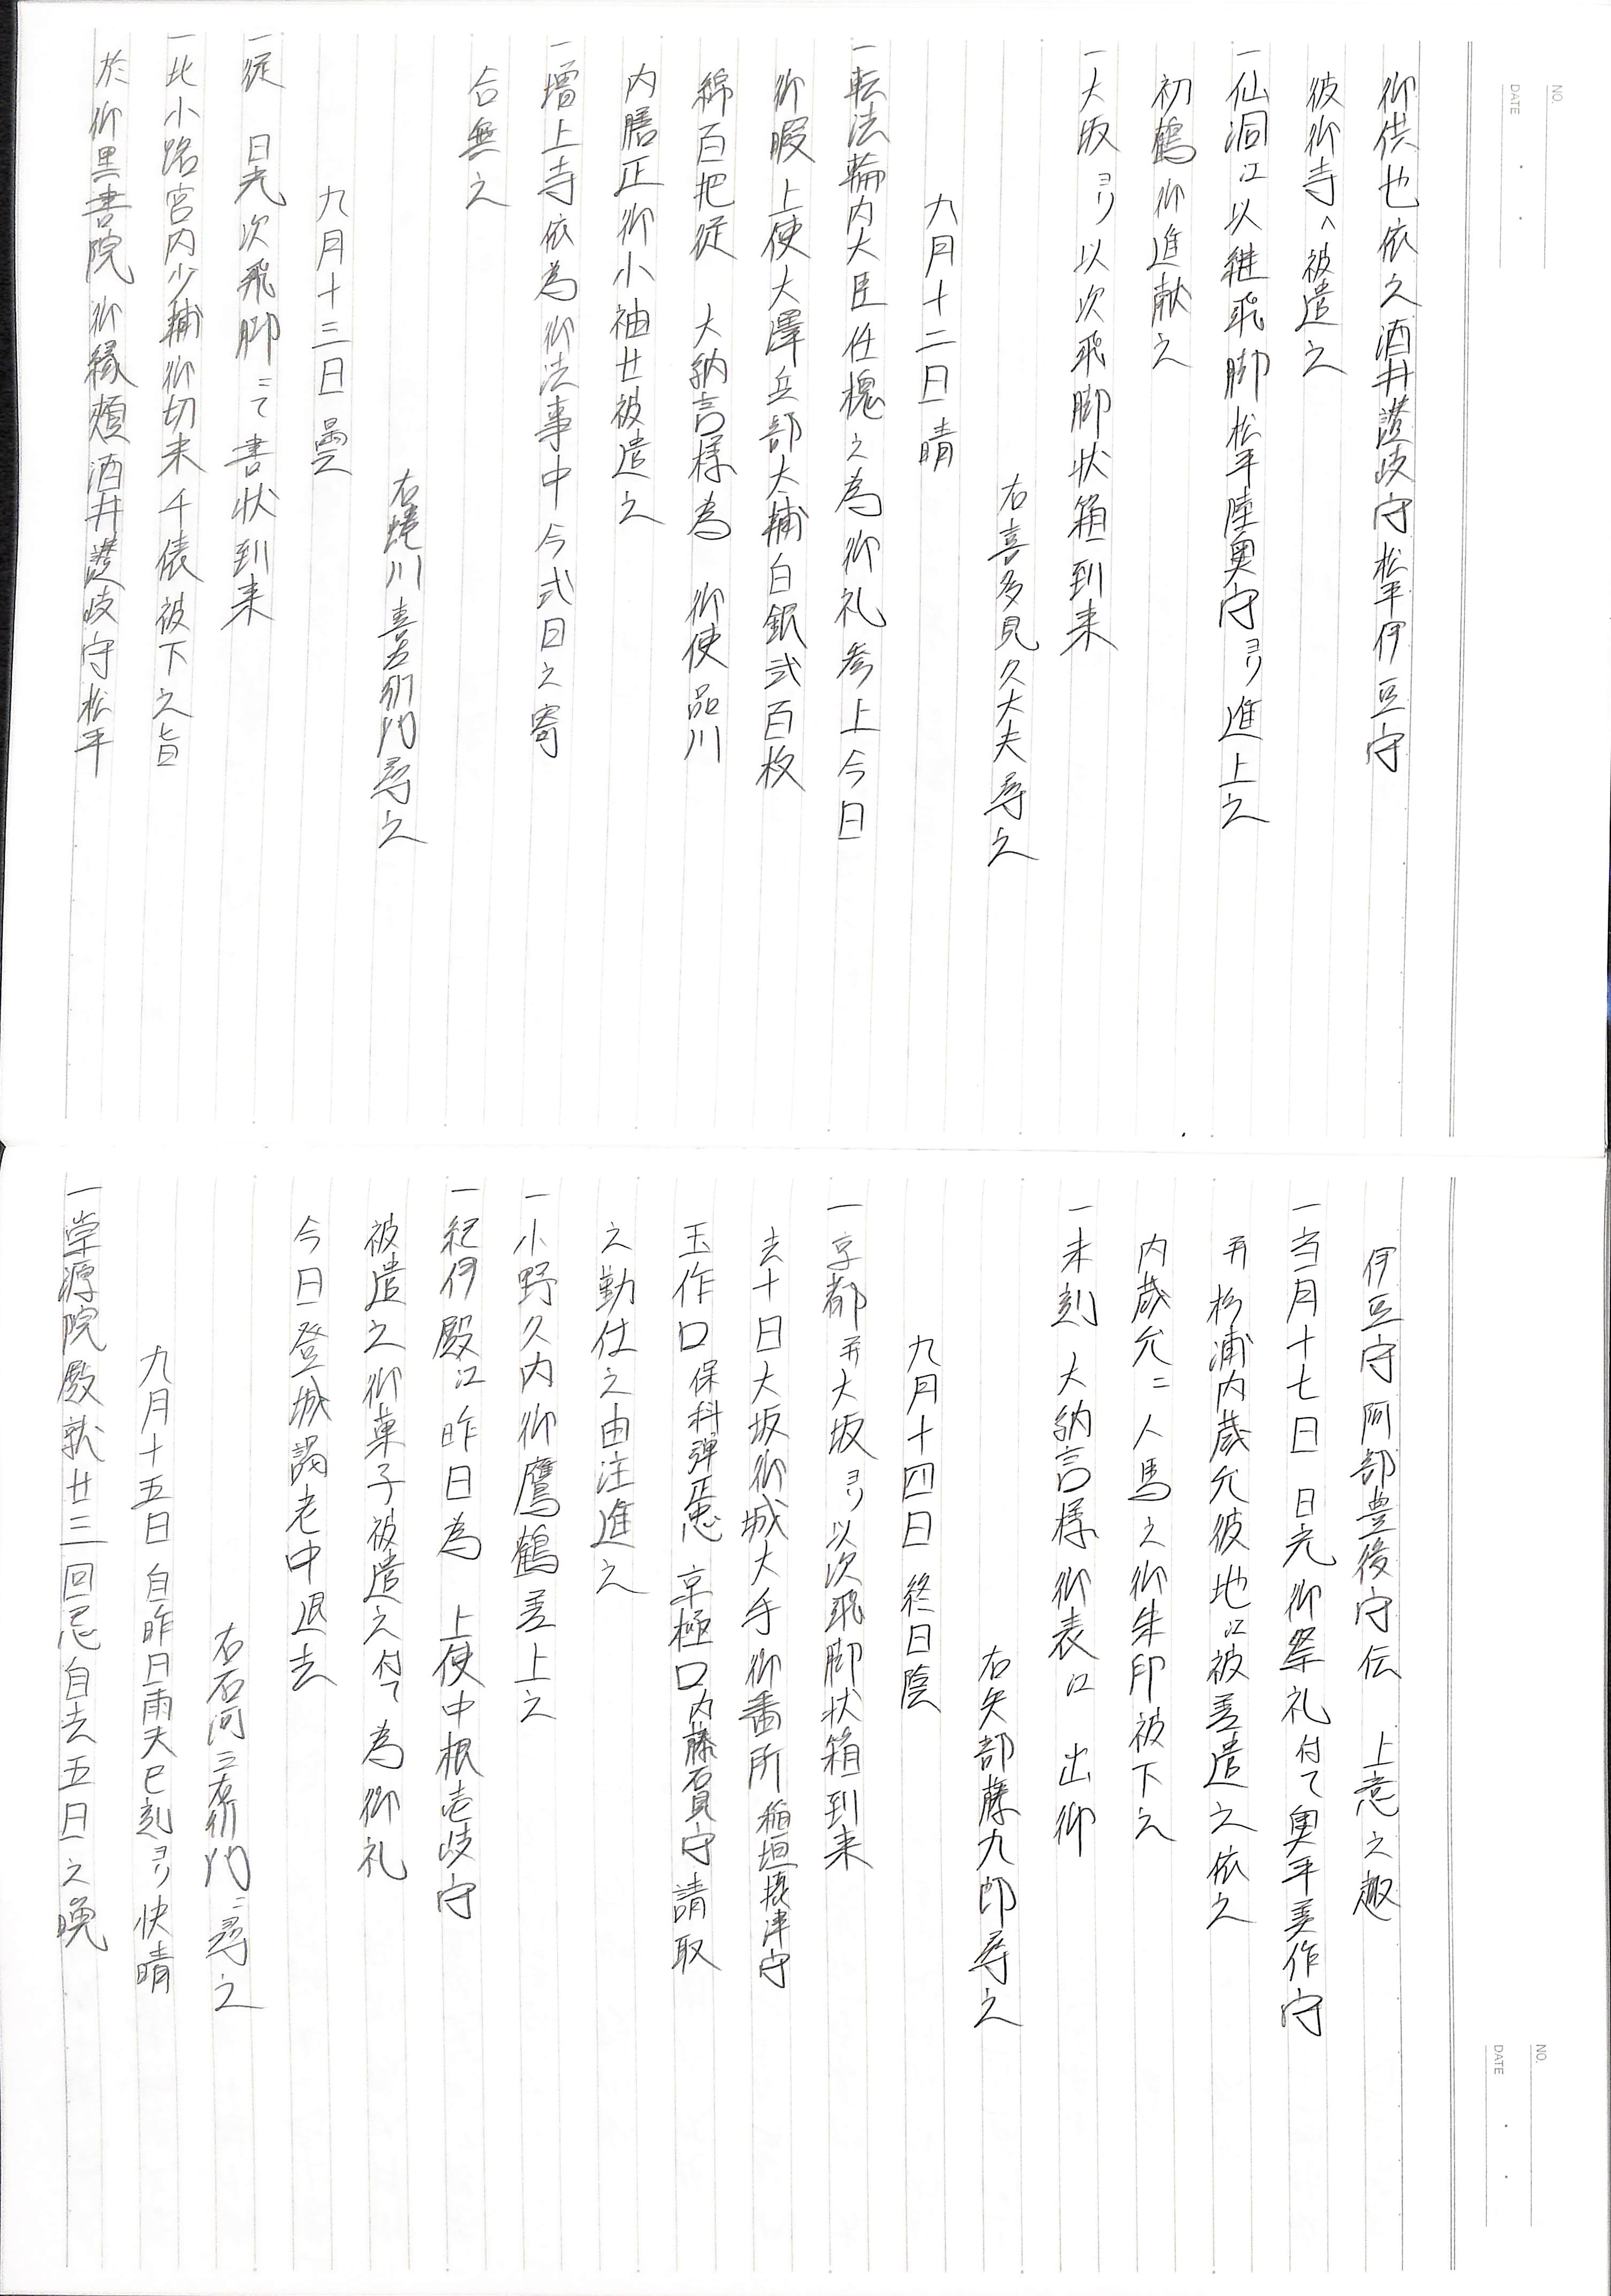 NO.
DATE
御供也依之酒井讃岐守松平伊豆守
彼御寺へ被遣之
一仙洞江以継飛脚松平陸奥守ヨリ進上之
初鶴御進献之
一大坂ヨリ以次飛脚状箱到来
右喜多見久大夫尋之
九月十二日晴
一転法輪内大臣任槐之為御礼参上今日
御暇 上使大澤兵部大輔白銀弐百枚
綿百把従 大納言様為 御使品川
内膳正御小袖廿被遣之
一増上寺依為御法事中今式日之寄
合無之
右蜷川喜左衛門尋之
九月十三日 曇
一従 日光次飛脚ニて書状到来
一北小路宮内少輔御切米千俵被下之旨
於御黒書院御縁頬酒井讃岐守松平
NO.
DATE
伊豆守阿部豊後守伝 上意之趣
一当月十七日 日光御祭礼付て奥平美作守
并杉浦内蔵允彼地江被差遣之依之
内蔵允ニ人馬之御朱印被下之
一未刻 大納言様御表江 出御
右矢部藤九郎尋之
九月十四日 終日陰
一京都并大坂ヨリ以次飛脚状箱到来
去十日大坂御城大手御番所稲垣摂津守
玉作口保科弾正忠 京極口内藤石見守請取
之勤仕之由注進之
一小野久内御鷹鶴差上之
一紀伊殿江昨日為 上使中根壱岐守
被遣之御菓子被遣之付て為御礼
今日登城謁老中退去
右石河三右衛門ニ尋之
九月十五日 自昨日雨天巳刻ヨリ快晴
一崇源院殿就廿三回忌自去五日之晩